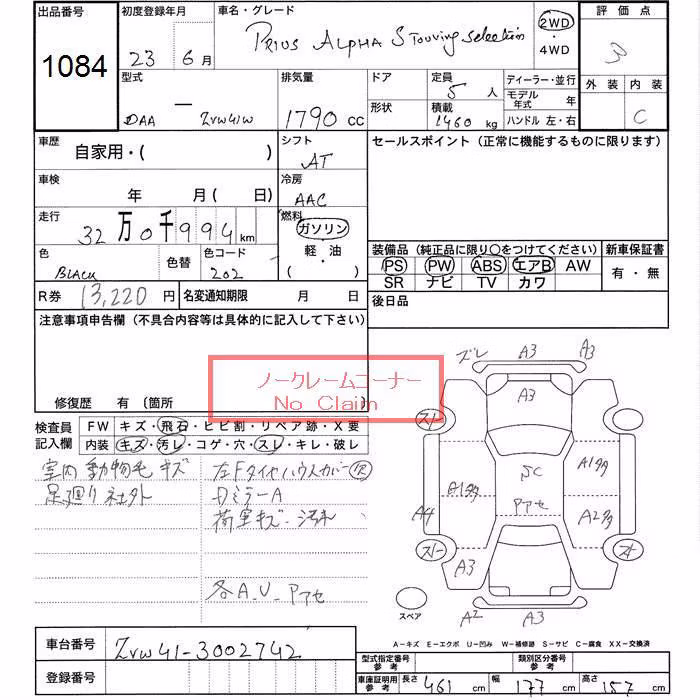 出品番号
1084
初度登録年月
23 6月
車名・グレード
PRIUS ALPHA S Touring selection
2WD
・4WD
評価点
3
外装 内装
C
型式
DAA - ZVW41W
排気量
1790 cc
ドア
形状
定員
5 人
積載
1460 kg
ディーラー・並行
モデル年式 年
ハンドル 左・右
車歴
自家用・( )
シフト
AT
セールスポイント(正常に機能するものに限ります)
車検
年 月(日)
冷房
AAC
走行
32万0千994km
燃料
ガソリン
軽・油
( )
色
BLACK
色替
色コード
202
装備品(純正品に限り○をつけてください)
PS PW ABS エアB AW
SR ナビ TV カワ
新車保証書
有・無
R券 13,220円
名変通知期限 月 日
後日品
注意事項申告欄(不具合内容等は具体的に記入して下さい)
ノークレームコーナー
No Claim
修復歴 有(箇所 )
検査員記入欄
FW キズ・飛石・ヒビ割・リペア跡・X要
内装 キズ・汚レ・コゲ・穴・スレ・キレ・破レ
室内動物毛 キズ
足廻り社外
左Fタイヤハウスカバー欠
DミラーA
荷室キズ・汚れ
各A.U.Pアセ
ズレ A3 A3
A3
スリ
A1多
SC
Pアセ
A1多
A4
A2多
A3
A2 A3
スペア
A-キズ E-エクボ U-凹み W-補修跡 S-サビ C-腐食 XX-交換済
車台番号
ZVW41-3002742
登録番号
型式指定番号 参考
類別区分番号 参考
車庫証明用 参考
長さ 461 cm 幅 177 cm 高さ 157 cm